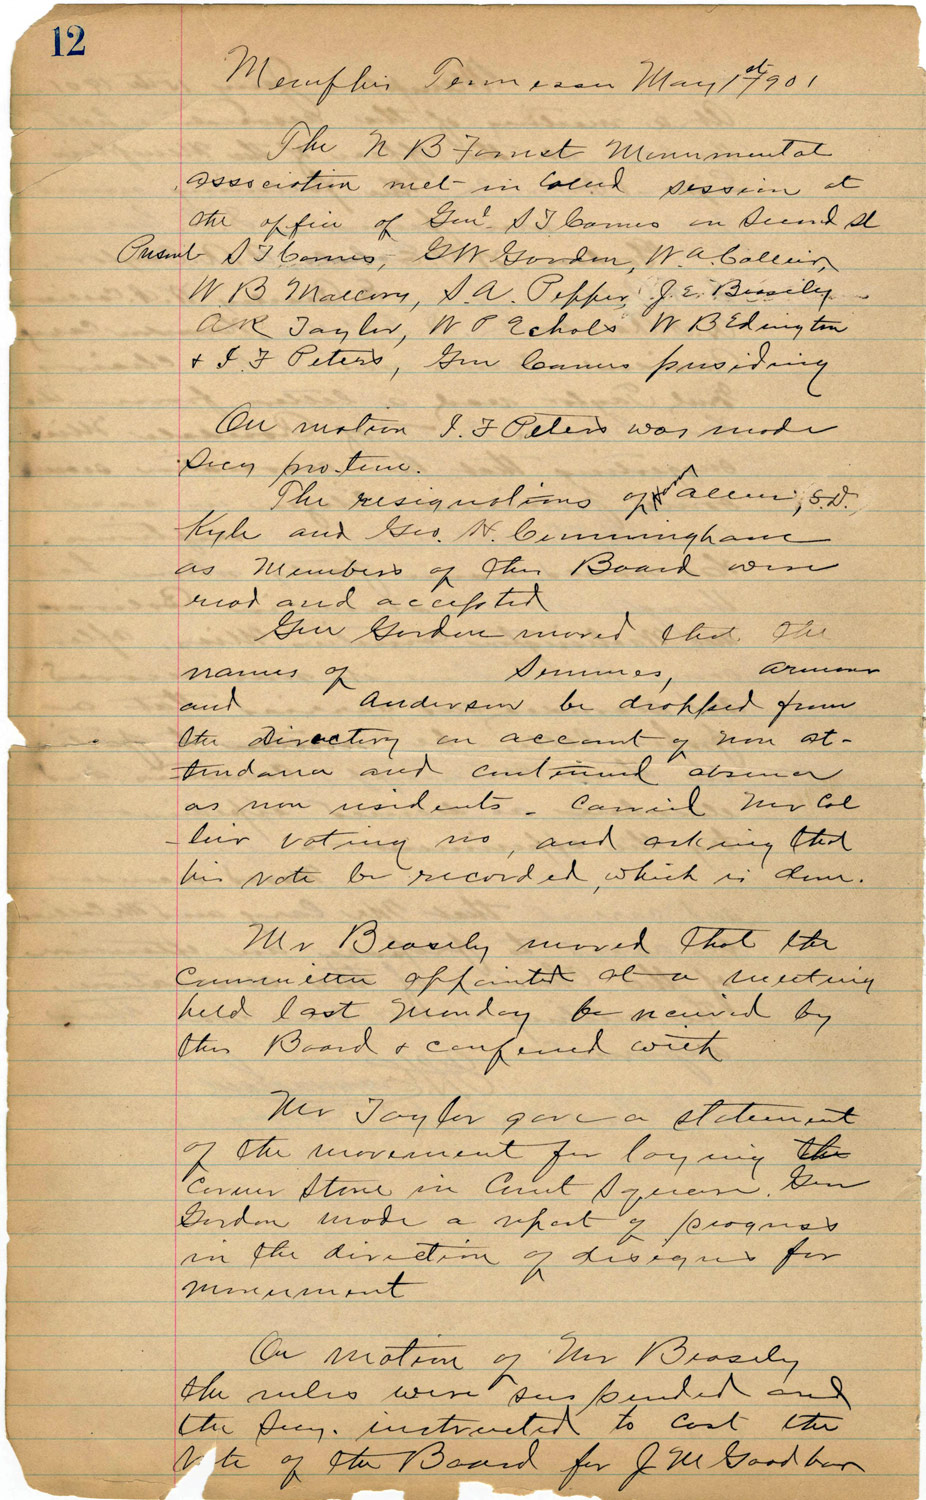 12
Memphis Tennessee May 1st 1901
The N B Forrest Monumental
association met in called session at
the office of Genl. S T Carnes on Second St
Present S T Carnes, G W Gordon, W. A. Collier,
W B Mallory, S. A. Pepper, J. E. Beasily
A R Taylor, W P Echols W B Edington
& I. F Peters, Gen Carnes presiding
On motion I. F Peters was made
Secy pro-tem.
The resignations of Allen, S. D.
Kyle and Geo. H. Cunningham
as Members of this Board were
read and accepted
Gen Gordon moved that the
names of Semmes, Armour
and Anderson be dropped from
the directory on account of non at-
tendance and continued absence
as non residents - Carried Mr Col
-lier voting no, and asking that
his vote be recorded, which is done.
Mr Beasily moved that the
Committee appointed at a meeting
held last Monday be received by
this Board & conferred with
Mr Taylor gave a statement
of the movement for laying the
Corner Stone in Court Square. Gen
Gordon made a report of progress
in the direction of designs for
monument
On motion of Mr Beasily
the rules were suspended and
the Secy. instructed to cast the
Vote of the Board for J M Goodbar